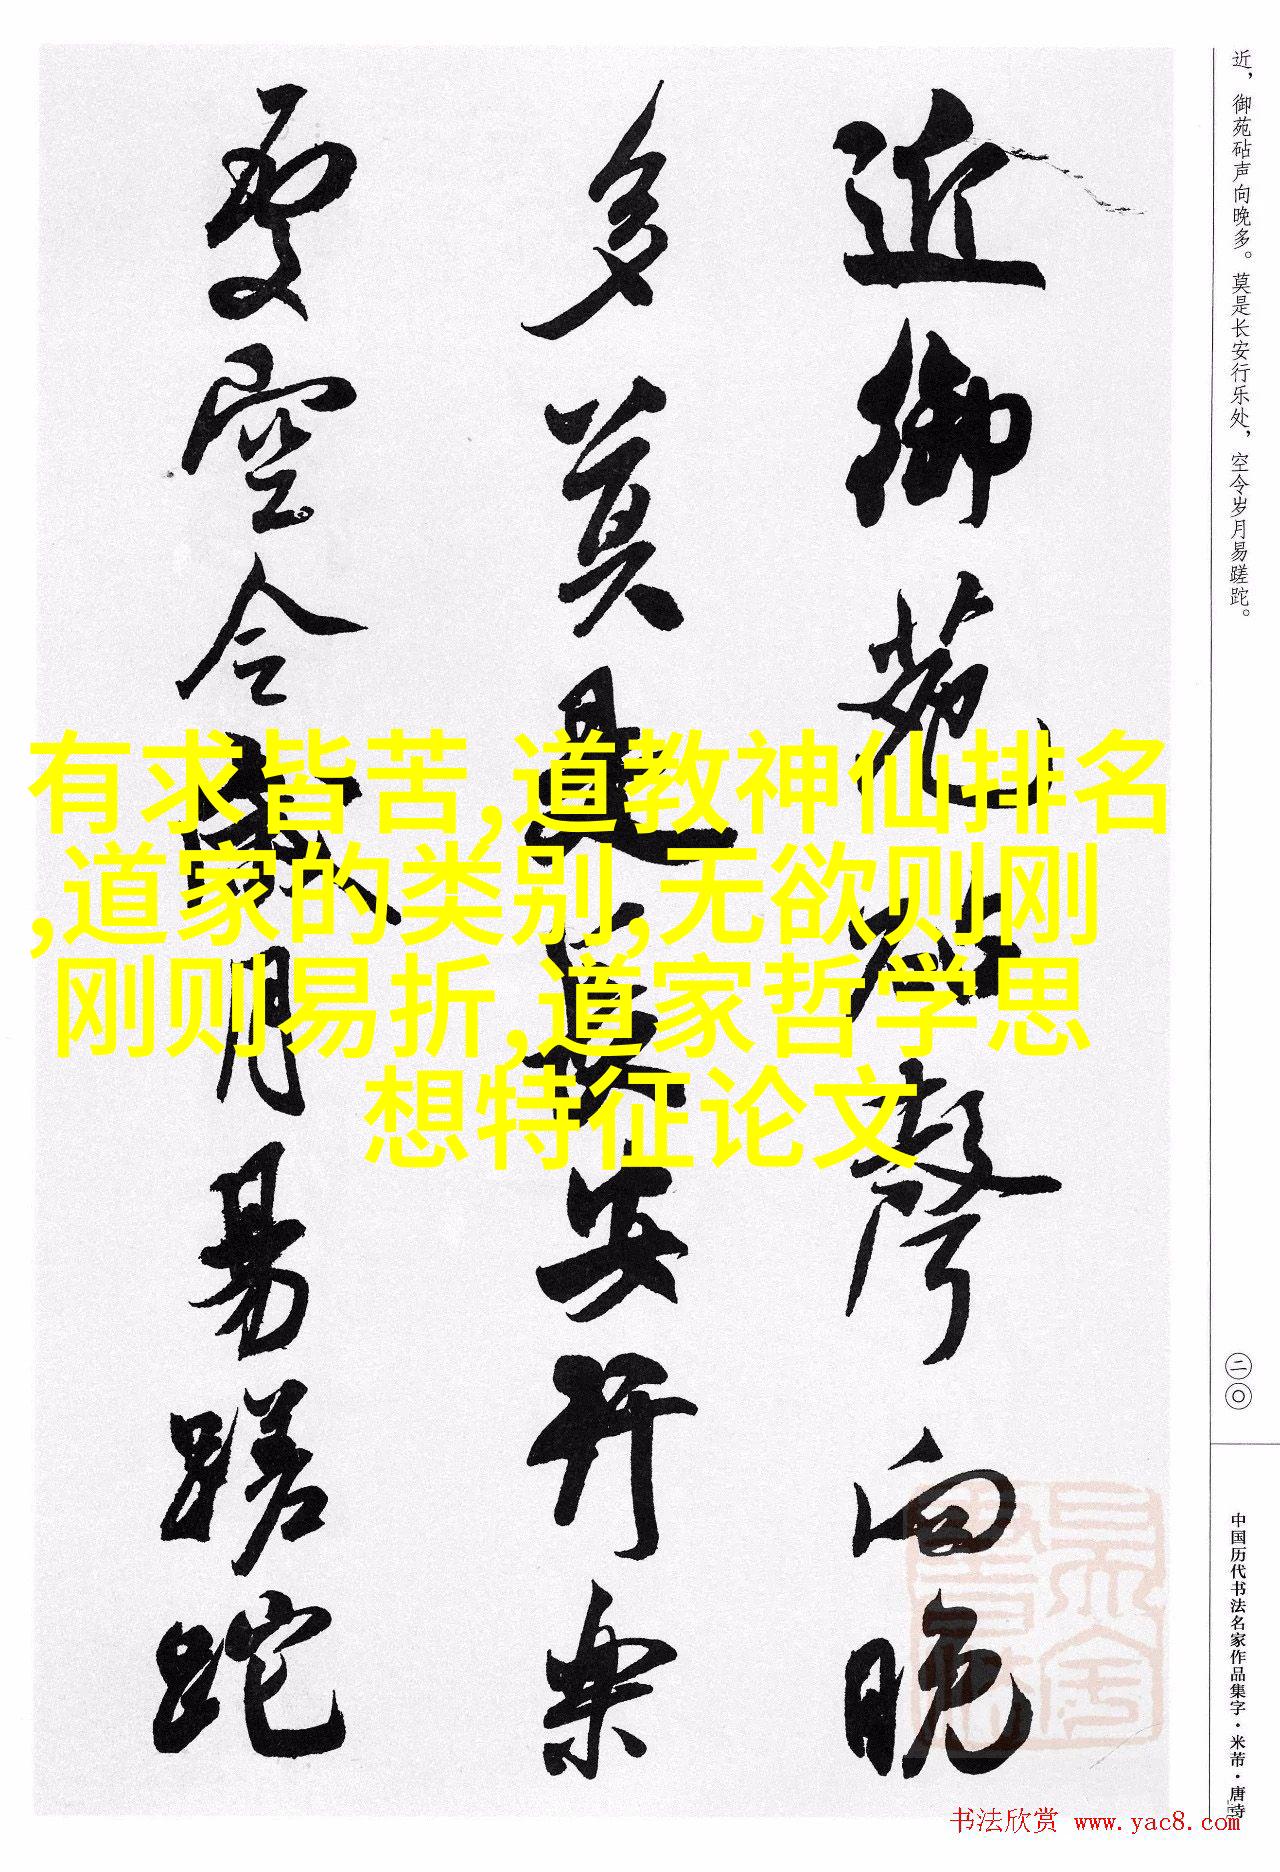 近御苑砧聲向晚
多莫是長安行樂
處空令歲月易蹉跎
近，御苑砧声向晚多。莫是长安行乐处，空令岁月易蹉跎。
二〇
中国历代书法名家作品集字·米芾·唐诗
有求皆苦,道教神仙排名
,道家的类别,无欲则刚
刚则易折,道家哲学思
想特征论文
书法欣赏 www.yac8.com